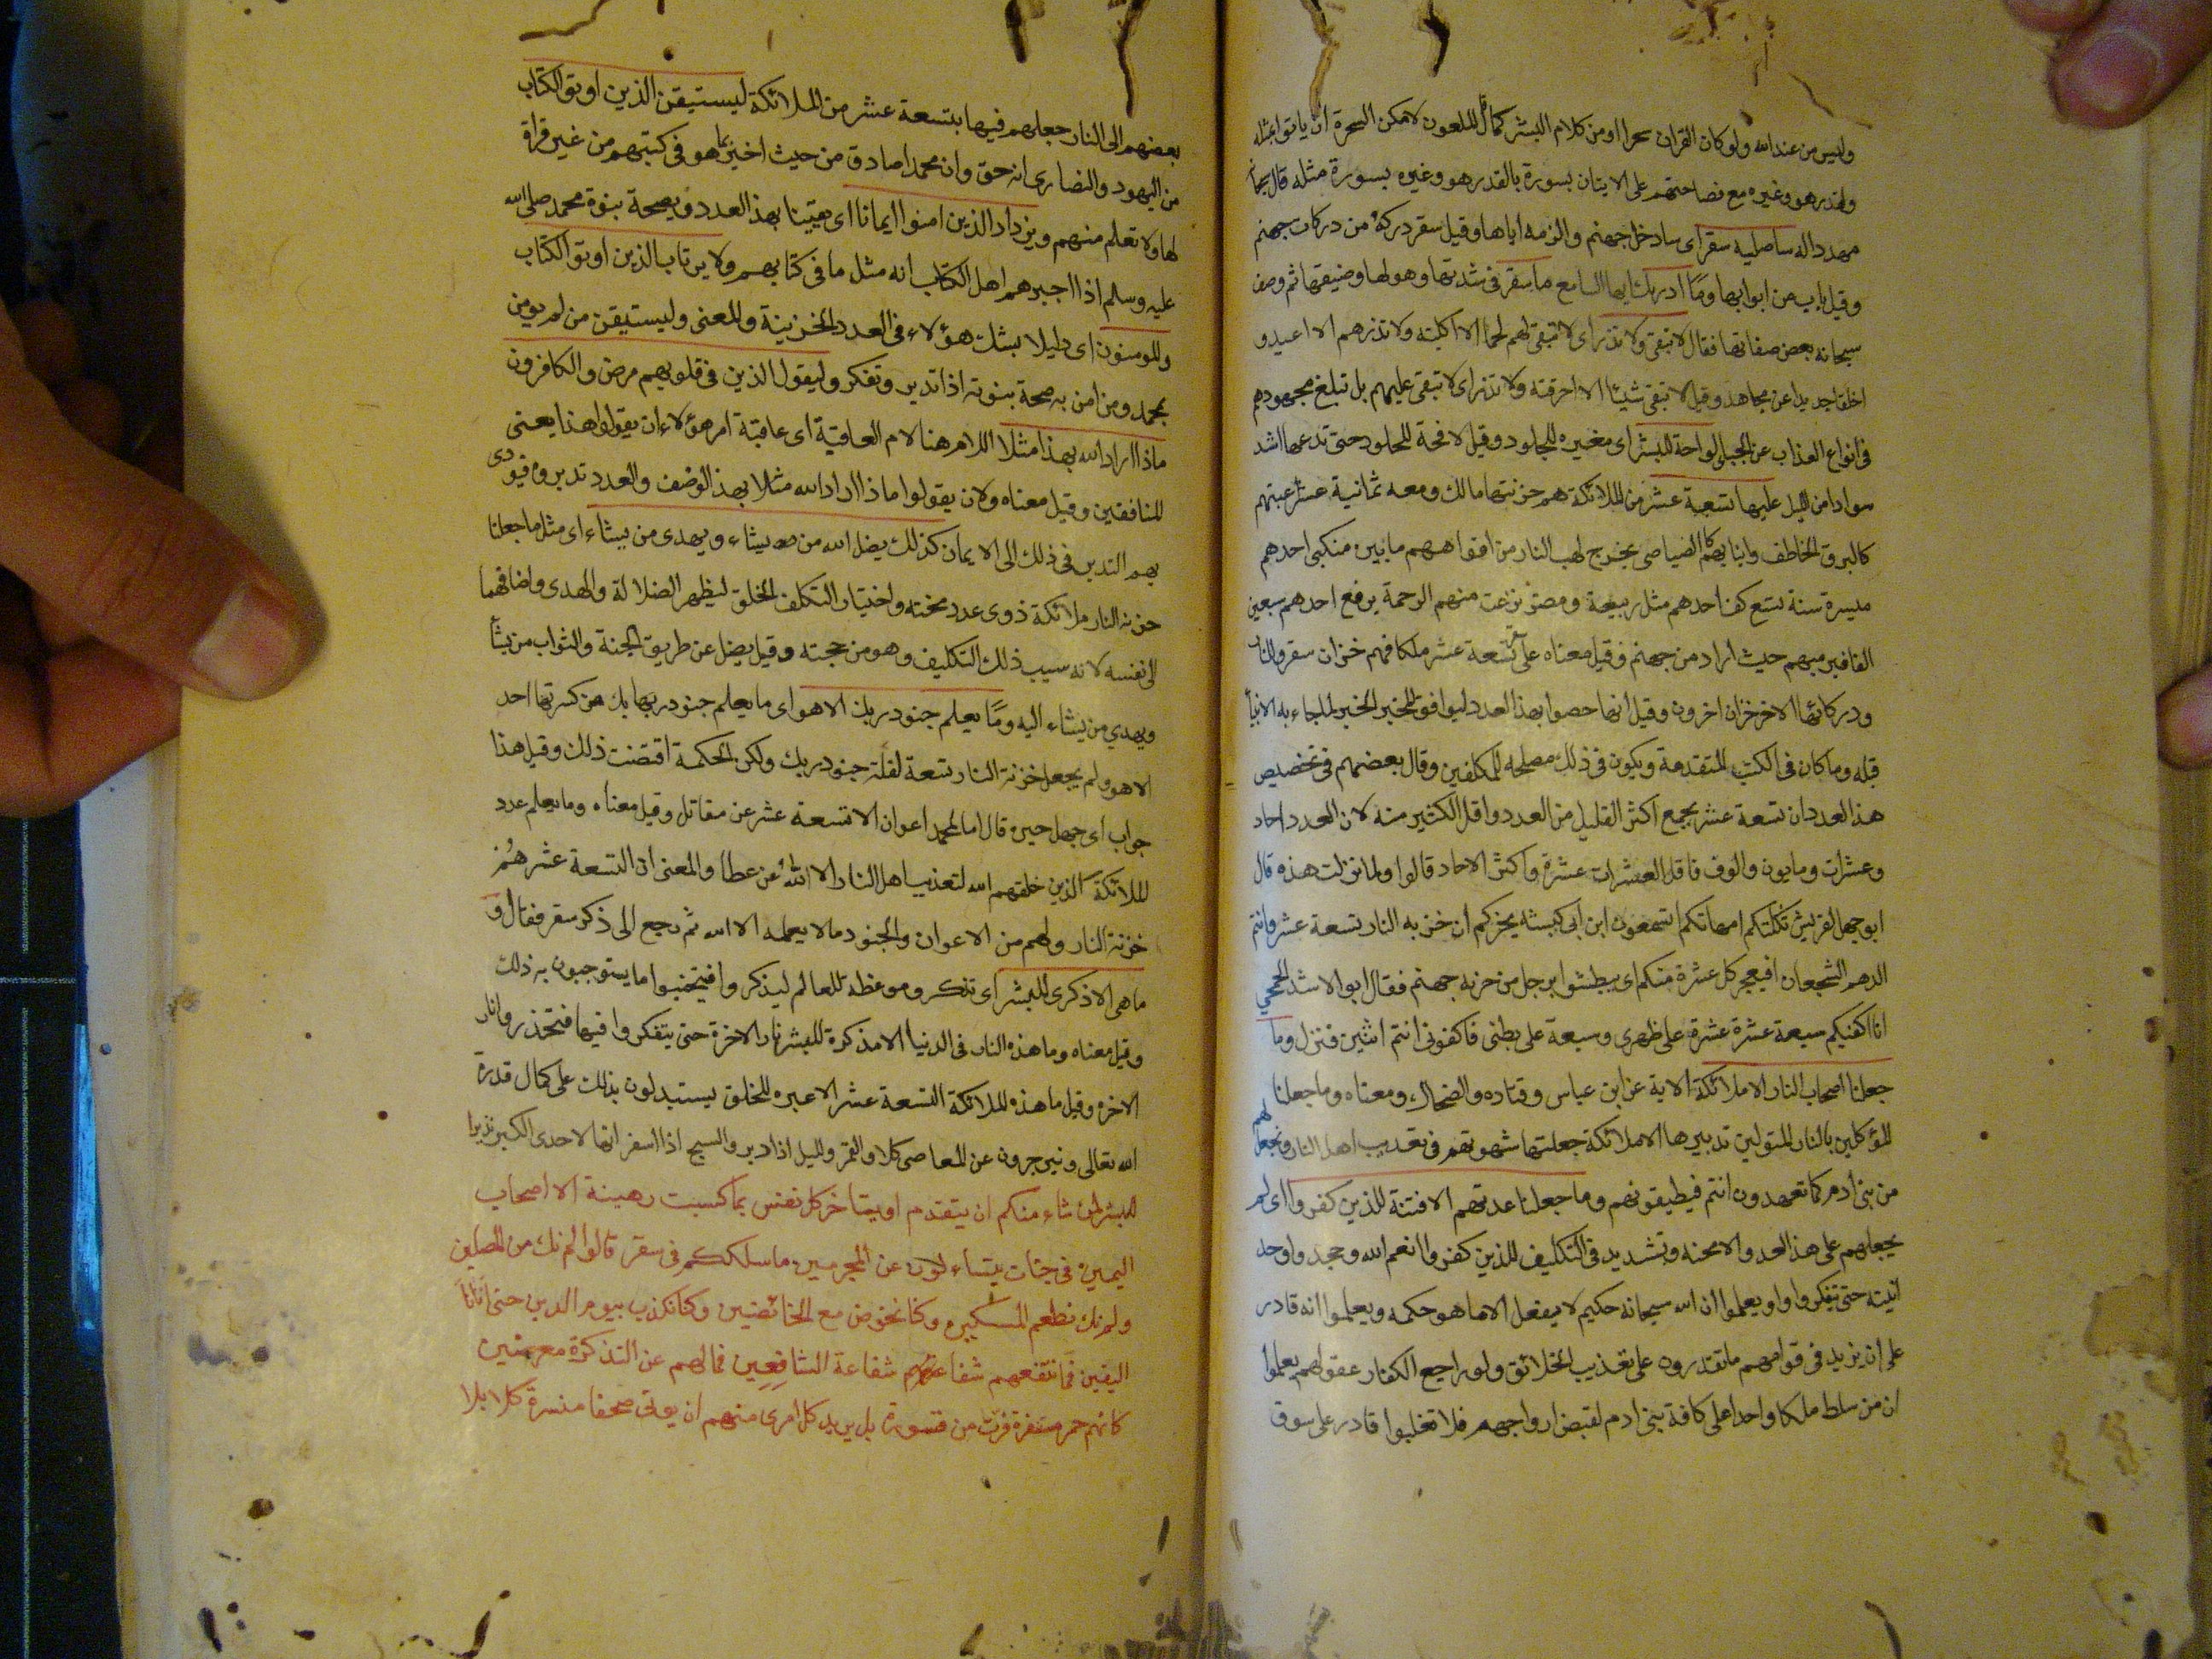 وليس من عند الله ولو كان القران سحرا او من كلام البشر كما قال الملعون لامكن السحرة ان ياتوا بمثله
ولقدر هو وغيره مع فصاحتهم على الاتيان بسورة بالقدر هو وغيره بسورة مثله قال سبحانه
مهددا له ساصليه سقر اى سادخل جهنم والزمه اياها وقيل سقر دركة من دركات جهنم
وقيل باب من ابوابها وما ادريك ايها السامع ما سقر فى شدتها وهولها وضيقها ثم وصف
سبحانه بعض صفاتها فقال لا تبقى ولا تذر اى لا تبقى لهم لحما الا اكلته ولا تذرهم الا اعيدو
اخلقا جديدا عن مجاهد وقيل لا تبقى شيئا الا احرقته ولا تذر اى لا تبقى عليهم بل تبلغ مجهودهم
فى انواع العذاب عن الجبلى لواحة للبشر اى مغيره للجلود وقيل لافحة للجلود حتى تدعها اشد
سوادا من الليل عليها تسعة عشر من الملائكة هم خزنتها مالك ومعه ثمانية عشر عينهم
كالبرق الخاطف وانيابهم كالصياصى يخرج لهب النار من افواههم ما بين منكبى احدهم
مسيرة سنة تسع كف احدهم مثل ربيعة ومضر نزعت منهم الرحمة يرفع احدهم سبعين
الفا فيرميهم حيث اراد من جهنم وقيل معناه على تسعة عشر ملكا فهم خزان سقر وللنار
ودركاتها الاخر خزان اخرون وقيل انما خصوا بهذا العدد ليوافق المخبر الخبر لما جاء به الانبيا
قبله وما كان فى الكتب المتقدمة ويكون فى ذلك مصلحه للمكلفين وقال بعضهم فى تخصيص
هذا العدد ان تسعة عشر يجمع اكثر القليل من العدد واقل الكثير منه لان العدد احاد
وعشرات ومايون والوف فاقل العشرات عشرة واكثر الاحاد قالوا ولما نزلت هذه قال
ابو جهل لقريش ثكلتكم امهاتكم اتسمعون ابن ابى كبشه يخبركم ان خزنه النار تسعة عشر وانتم
الدهم الشجعان افيعجز كل عشرة منكم اى يبطشوا برجل من خزنه جهنم فقال ابو الاشد الجمحي
انا اكفيكم سبعة عشرة عشرة على ظهرى وسبعة على بطنى فاكفونى انتم اثنين فنزل وما
جعلنا اصحاب النار الا ملائكة الاية عن ابن عباس وقتاده والضحاك ومعناه وما جعلنا
الموكلين بالنار المتولين تدبيرها الا ملائكة جعلتها شهوتهم فى تعذيب اهل النار ونجعلهم
من بنى ادم كما تعهدون انتم فيطيقونهم وما جعلنا عدتهم الا فتنة للذين كفروا اى لم
يجعلهم على هذا العدد الا محنه وتشديد فى التكليف للذين كفروا انعم الله وجحدوا وحد
انيته حتى تتفكروا واو يعلموا ان الله سبحانه حكيم لا يفعل الا ما هو حكمه ويعلموا انه قادر
على ان يزيد فى قواهم ما تقدرون على تعذيب الخلائق ولو راجع الكفار عقولهم يعلموا
ان من سلط ملكا واحدا على كافة بنى ادم لقبض ارواحهم فلا تغلبوا قادر على سوق
بعضهم الى النار جعلهم فيها بتسعة عشر من الملائكة ليستيقن الذين اوتو الكتاب
من اليهود والنصارى انه حق وان محمدا صادق من حيث اخبر بما هو فى كتبهم من غير قراة
لها ولا تعلم منهم ويزداد الذين امنوا ايمانا اى يقينا بهذا العدد وبصحة نبوة محمد صلى الله
عليه وسلم اذا اخبرهم اهل الكتاب انه مثل ما فى كتابهم ولا يرتاب الذين اوتو الكتاب
والمومنون اى دليلا يشك هؤلاء فى العدد الخزينة والمعنى وليستيقن من لم يومن
بمحمد ومن امن به صحة نبوته اذا تدبر وتفكر وليقول الذين فى قلوبهم مرض والكافرون
ماذا اراد الله بهذا مثلا اللام هنا لام العاقبة اى عاقبة امر هؤلاء ان يقولوا هذا يعنى
المنافقين وقيل معناه ولان يقولوا ماذا اراد الله مثلا بهذا الوصف والعدد تدبروه فيودى
بهم التدبر فى ذلك الى الايمان كذلك يضل الله من يشاء ويهدى من يشاء اى مثل ما جعلنا
خزنه النار ملائكة ذوى عدد محنته واختيار التكلف الخلق ليظهر الضلالة والهدى واضافهما
الى نفسه لانه سبب ذلك التكليف وهو من حجته وقيل يضل عن طريق الجنة والثواب من يشا
ويهدي من يشاء اليه وما يعلم جنود ربك الا هو اى ما يعلم جنود ربها بك من كثرتها احد
الا هو ولم يجعل خزنة النار تسعة لقلة جنود ربك ولكن الحكمة اقتضت ذلك وقيل هذا
جواب اى جهل حيره قال اما لمحمد اعوان الا تسعة عشر عن مقاتل وقيل معناه وما يعلم عدد
الملائكة الذين خلقهم الله لتعذيب اهل النار الا الله عن عطا والمعنى ان التسعة عشر هم
خزنة النار ولهم من الاعوان والجنود ما لا يعلمه الا الله ثم رجع الى ذكر سقر فقال و
ما هى الا ذكرى للبشر اى تذكر وموعظه للعالم ليذكروا فيتجنبوا ما يستوجبون به ذلك
وقيل معناه وما هذه النار فى الدنيا الا مذكرة للبشر نار الاخرة حتى يتفكروا فيها فتحذروا نار
الاخره وقيل ما هذه الملائكة التسعة عشر الا عبره للخلق يستبدلون بذلك على كمال قدرة
الله تعالى وينزجرون عن المعاصى كلا والقمر والليل اذا دبر والسبح اذا اسفر انها لاحدى الكبر نذيرا
للبشر لمن شاء منكم ان يتقدم او يتاخر كل نفس بما كسبت رهينة الا اصحاب
اليمين فى جنات يتساءلون عن المجرمين ما سلككم فى سقر قالوا لم نك من المصلين
ولم نك نطعم المسكين وكنا نخوض مع الخائضين وكنا نكذب بيوم الدين حتى اتانا
اليقين فما تنفعهم شفاعتهم شفاعة الشافعين فما لهم عن التذكرة معرضين
كانهم حمر مستنفرة فرت من قسورة بل يريد كل امرى منهم ان يوتى صحفا منشرة كلا بلا